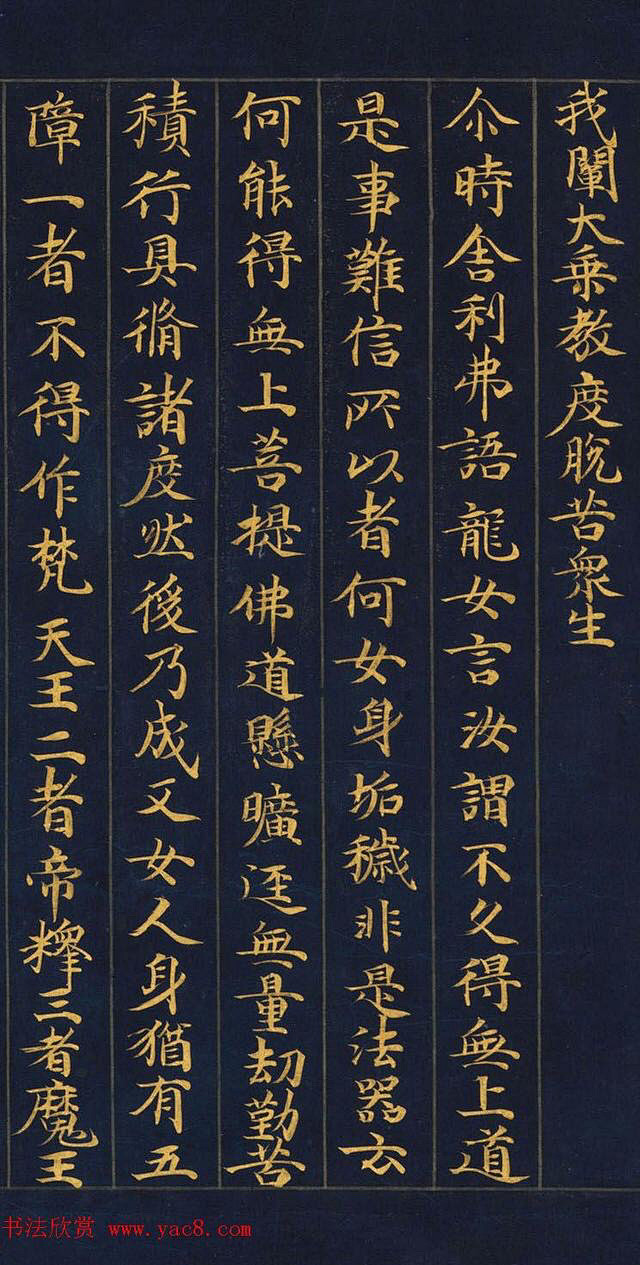 我闡大乗教度脫苦衆生
尒時舍利弗語龍女言汝謂不久得無上道
是事難信所以者何女身垢穢非是法器云
何能得無上菩提佛道懸曠逕無量劫勤苦
積行具脩諸度然後乃成又女人身猶有五
障一者不得作梵天王二者帝釋三者魔王
书法欣赏 www.yac8.com